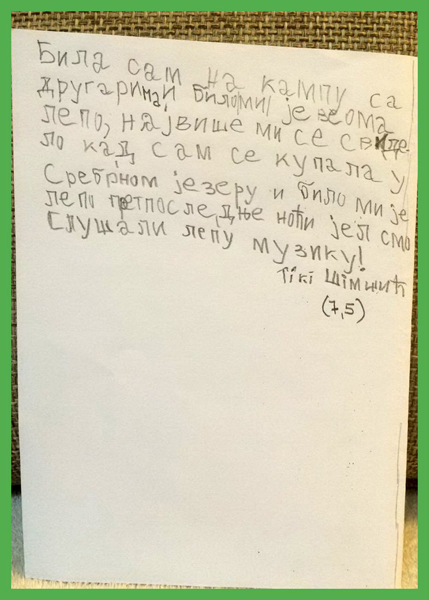 Била сам на кампу са
другаринај и биломи је веома
лепо, највише ми се свиде
ло кад сам се купала у
Сребрном језеру и било ми је
лепо претпоследње ноћи јел смо
слушали лепу музику!
Тікі Шімшић
(7,5)